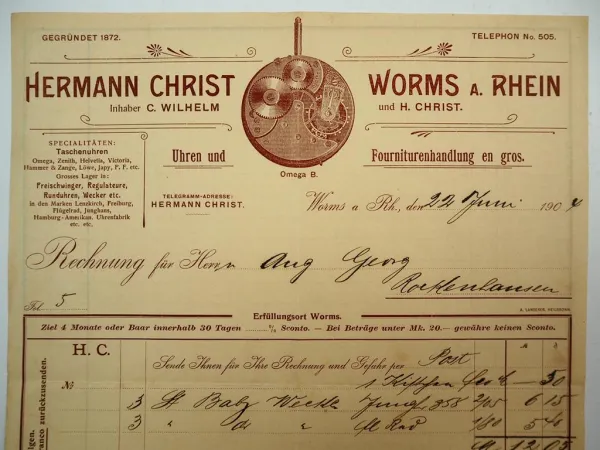 GEGRÜNDET 1872.
TELEPHON No. 505.
HERMANN CHRIST WORMS A. RHEIN
Inhaber C. WILHELM und H. CHRIST.
SPECIALITÄTEN:
Taschenuhren
Omega, Zenith, Helvetia, Victoria,
Hummer & Zange, Löwe, Japy, F. F. etc.
Grosses Lager in:
Freischwinger, Regulateure,
Runduhren, Wecker etc.
in den Marken Lenzkirch, Freiburg,
Flügelrad, Junghans,
Hamburg-Amerikan. Uhrenfabrik
etc. etc.
Uhren und Fourniturenhandlung en gros.
Omega B.
TELEGRAMM-ADRESSE:
HERMANN CHRIST.
Worms a Rh., den 22 Juni 1904
Rechnung für Herrn Aug Georg
Rockenhausen
Fol. 5
Erfüllungsort Worms.
Ziel 4 Monate oder Baar innerhalb 30 Tagen % Sconto. — Bei Beträge unter Mk. 20.— gewähre keinen Sconto.
H. C.
Sende Ihnen für Ihre Rechnung und Gefahr per Post
№ 1 50
3 St Baby Wecker Jungh 358 2/05 6 15
3 " do " 1/80 5 40
12 05
franco zurückzusenden.